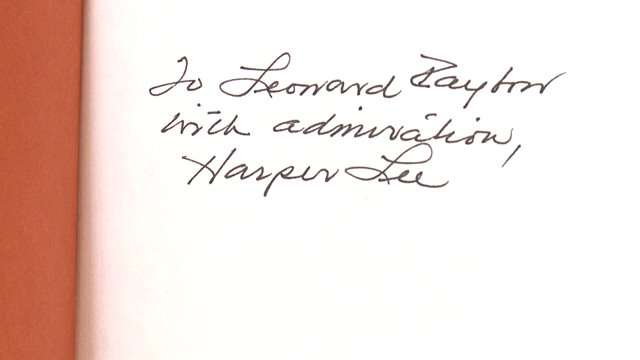 To Leonard Raybon
with admiration,
Harper Lee